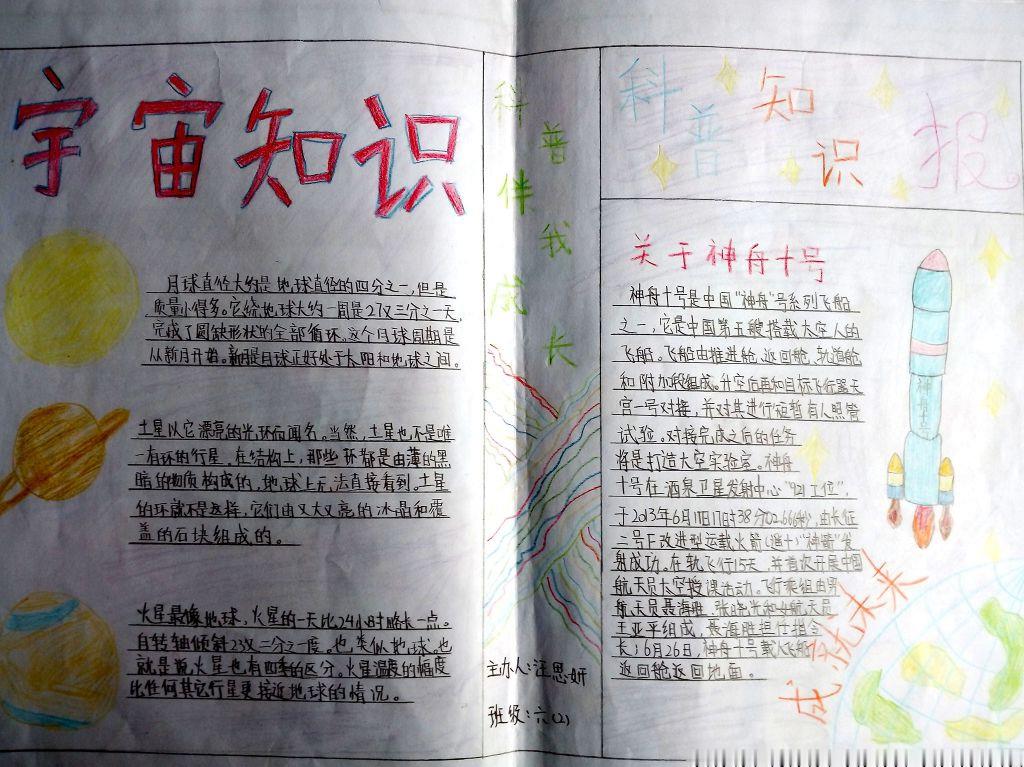 宇宙知识
月球直径大约是地球直径的四分之一,但是
质量小得多。它绕地球大约一周是27又三分之一天,
完成了圆缺形状的全部循环。这个月球周期是
从新月开始。新月是月球正好处于太阳和地球之间。
土星以它漂亮的光环而闻名。当然,土星也不是唯
一有环的行星。在结构上,那些环都是由薄的黑
暗的物质构成的,地球上无法直接看到。土星
的环就不是这样,它们由又大又亮的冰晶和覆
盖的石块组成的。
火星最像地球,火星的一天比24小时略长一点。
自转轴倾斜23又二分之一度。也类似地球。也
就是说火星也有四季的区分。火星温度的幅度
比任何其它行星更接近地球的情况。
科普伴我成长
主办人:汪思妍
班级:六(2)
科普知识报
关于神舟十号
神舟十号是中国“神舟”号系列飞船
之一,它是中国第五艘搭载太空人的
飞船。飞船由推进舱、返回舱、轨道舱
和附加段组成。升空后再和目标飞行器天
宫一号对接,并对其进行短暂有人照管
试验。对接完成之后的任务
将是打造太空实验室。神舟
十号在酒泉卫星发射中心“921工位”,
于2013年6月11日17时38分02.666秒,由长征
二号F改进型运载火箭(遥十)“神箭”发
射成功。在轨飞行15天,并首次开展中国
航天员太空授课活动。飞行乘组由男
航天员聂海胜、张晓光和女航天员
王亚平组成,聂海胜担任指令
长;6月26日,神舟十号载人飞船
返回舱返回地面。
神舟
成就未来